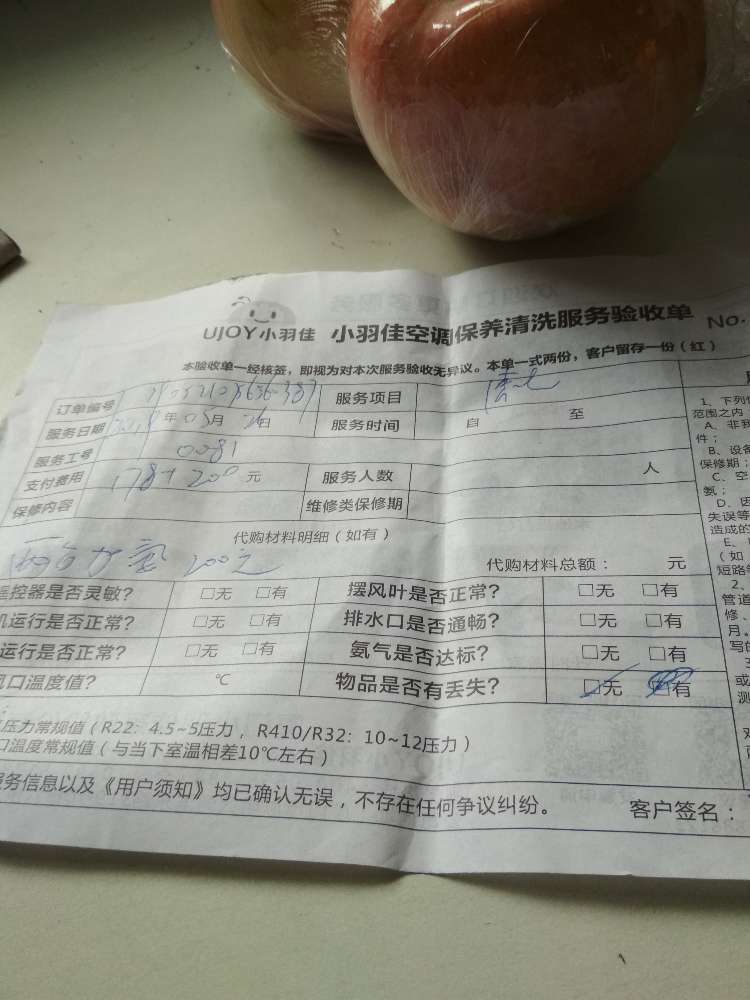 UJOY小羽佳 小羽佳空调保养清洗服务验收单 No.
本验收单一经核签，即视为对本次服务验收无异议。本单一式两份，客户留存一份（红）
订单编号 服务项目
服务日期 年 03 月 日 服务时间 自 至
服务工号 0081
支付费用 178+200 元 服务人数 人
保修内容 维修类保修期
代购材料明细（如有）
200元 代购材料总额： 元
遥控器是否灵敏？ □无 □有 摆风叶是否正常？ □无 □有
机运行是否正常？ □无 □有 排水口是否通畅？ □无 □有
运行是否正常？ □无 □有 氨气是否达标？ □无 □有
口温度值？ ℃ 物品是否有丢失？ □无 □有
压力常规值（R22：4.5~5压力，R410/R32：10~12压力）
口温度常规值（与当下室温相差10℃左右）
服务信息以及《用户须知》均已确认无误，不存在任何争议纠纷。
客户签名：
1、下列
范围之内
A、非我
件；
B、设备
保修期；
C、空
氨；
D、因
失误等
造成的
E、
（如
短路
2、
管道
修、
月。
写的
或
测